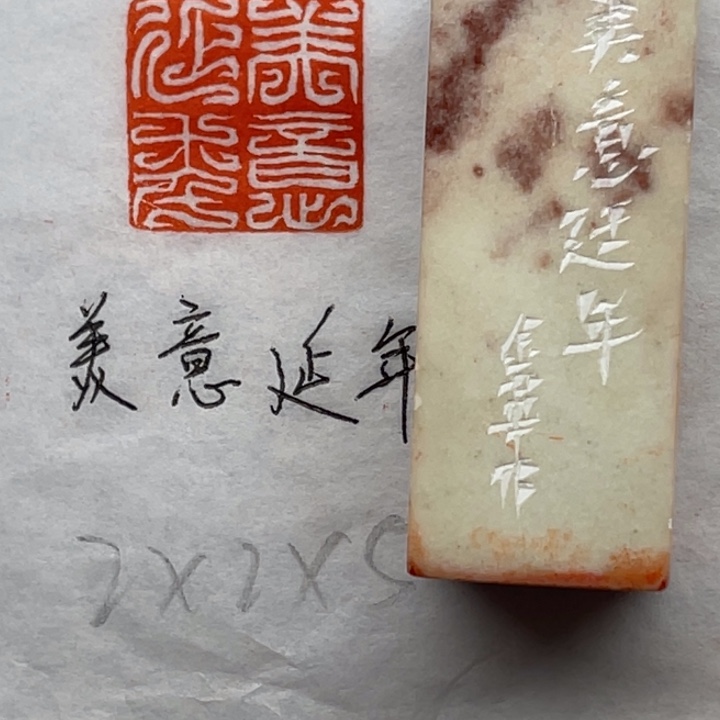 美意延年
美意延年
2X2X5
美意延年